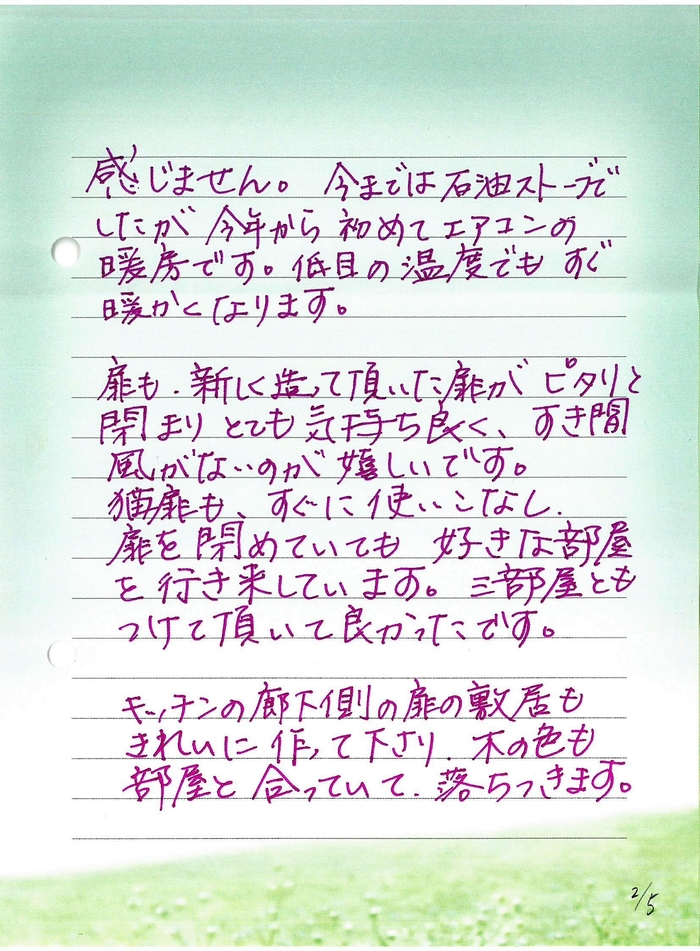 感じません。 今までは石油ストーブで
したが 今年から 初めて エアコンの
暖房です。低目の温度でも すぐ
暖かくなります。
扉も、新しく造って頂いた扉が ピタリと
閉まり とても気持ち良く、すき間
風がないのが 嬉しいです。
猫扉も、すぐに使いこなし、
扉を閉めていても 好きな部屋
を行き来しています。三部屋とも
つけて頂いて良かったです。
キッチンの廊下側の扉の敷居も
きれいに作って下さり、木の色も
部屋と合っていて、落ちつきます。
2/5